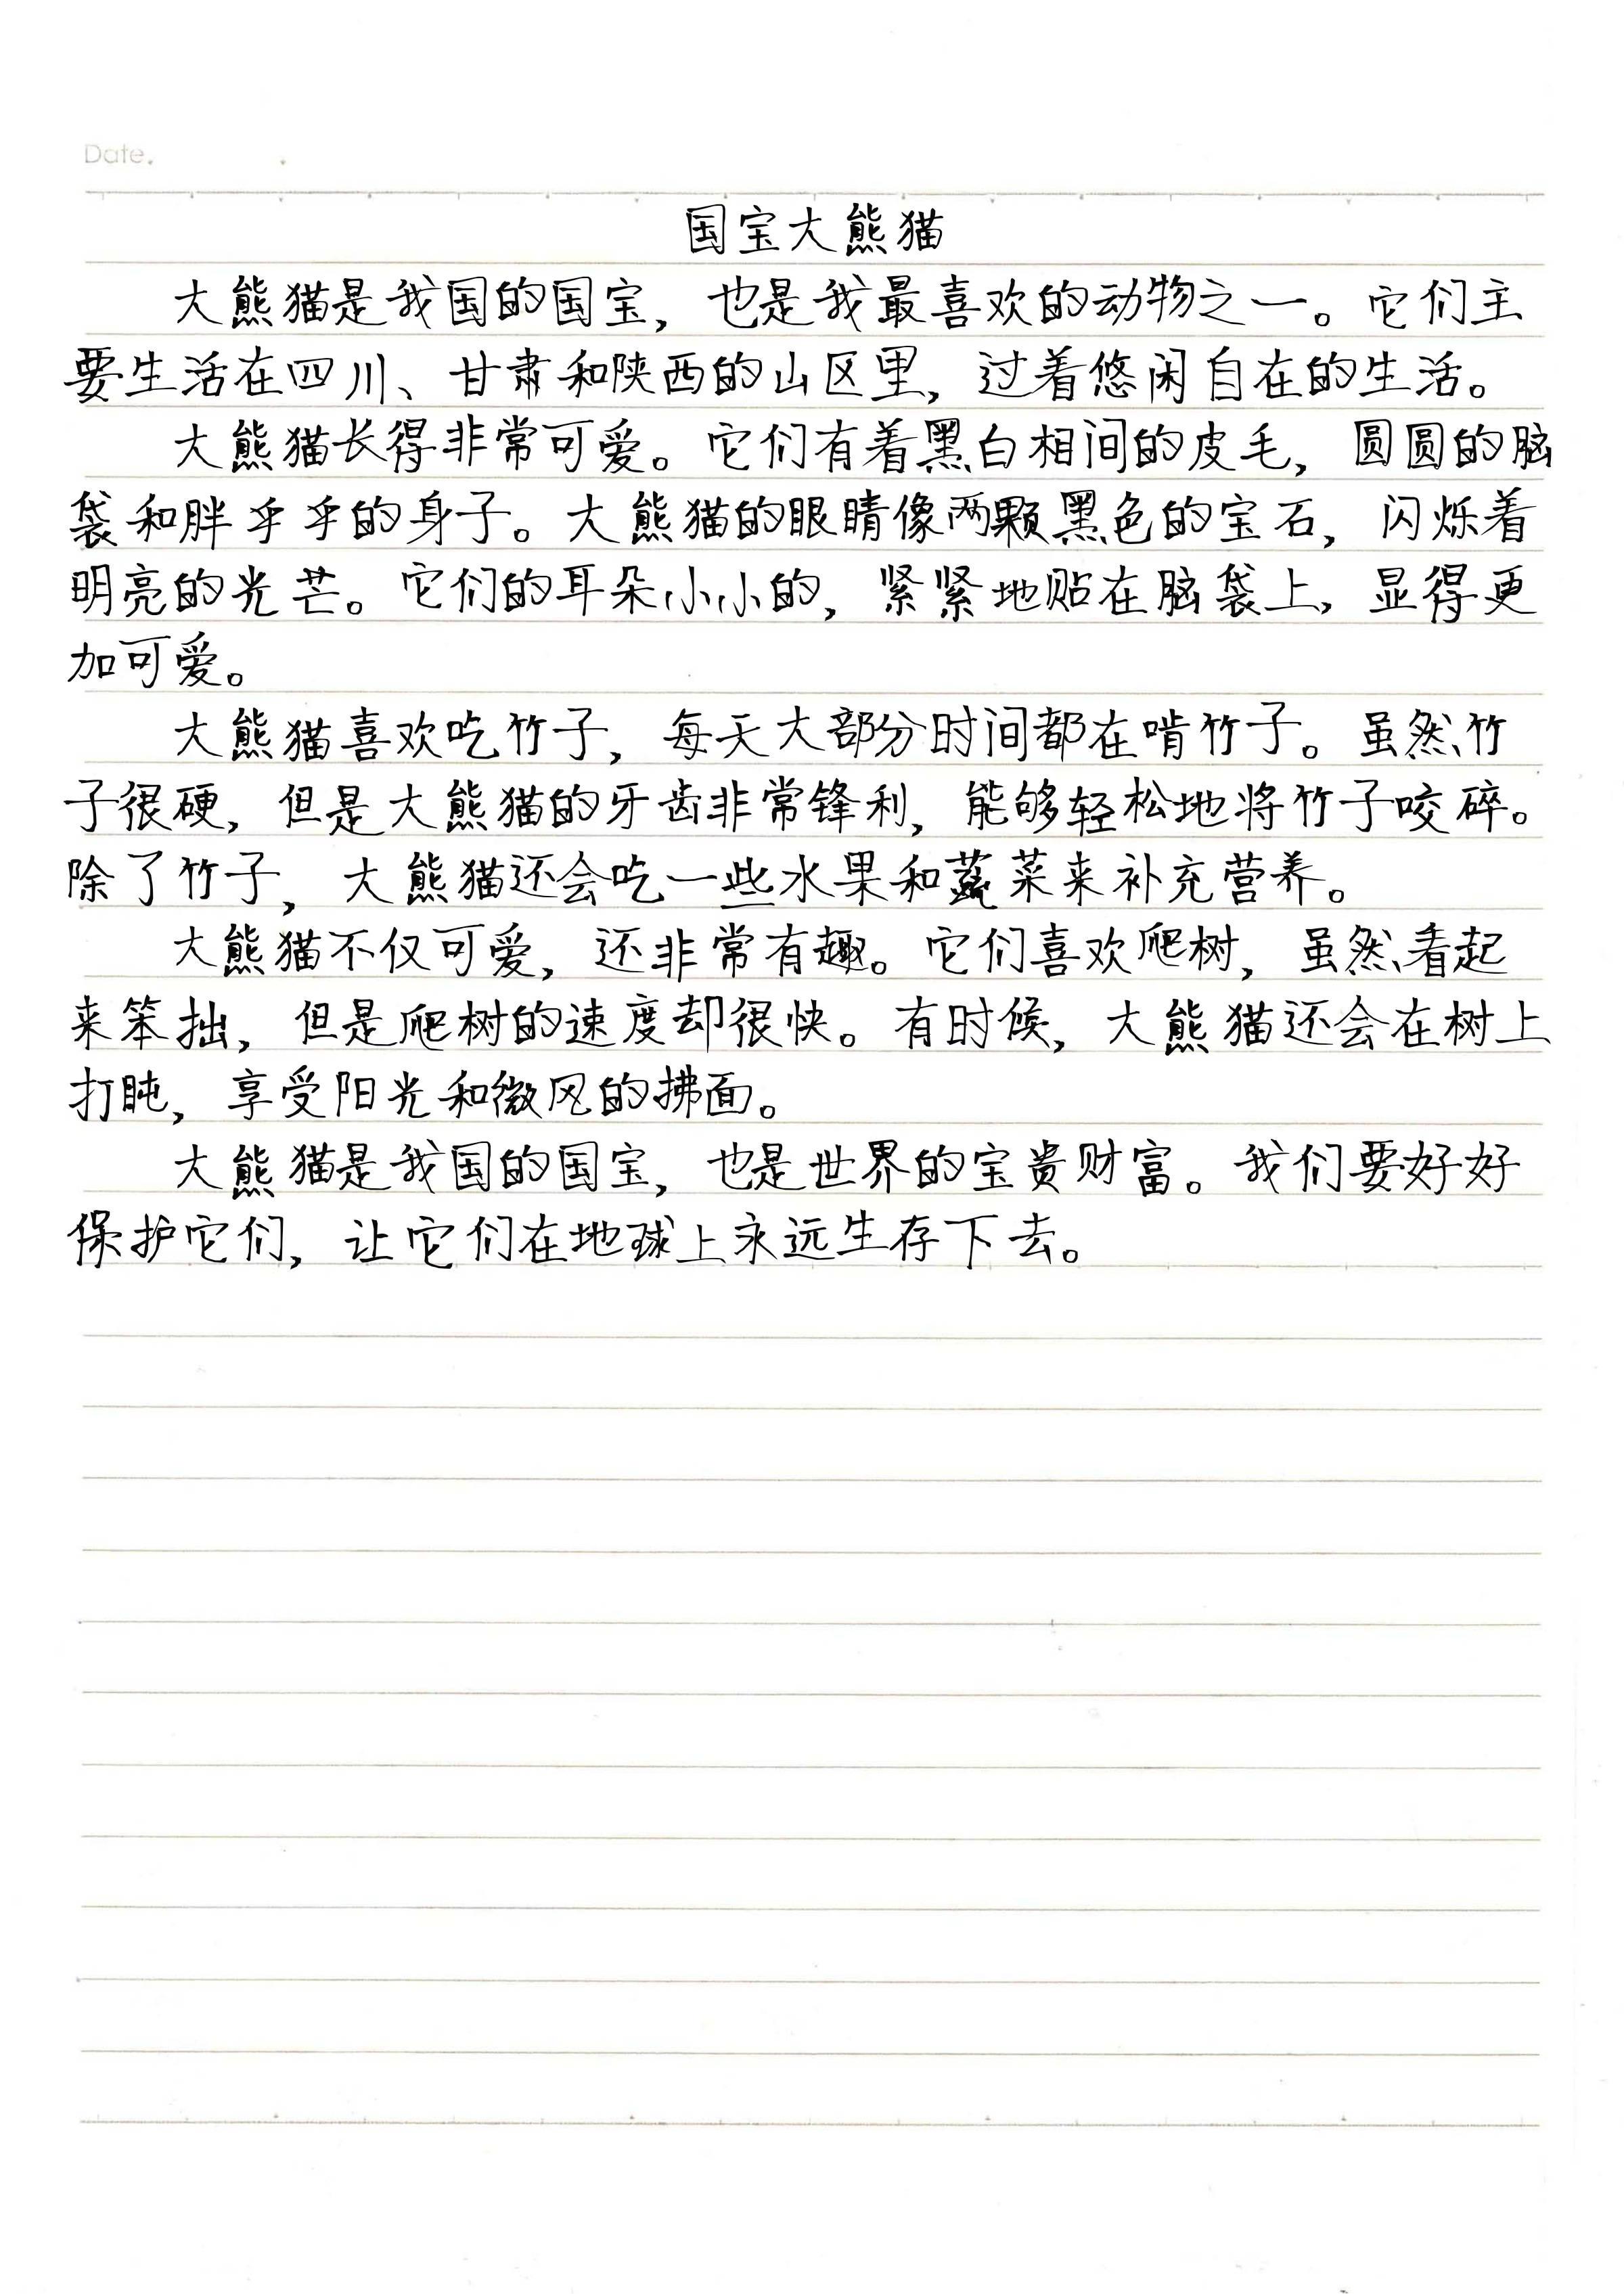 Date.
国宝大熊猫
大熊猫是我国的国宝，也是我最喜欢的动物之一。它们主
要生活在四川、甘肃和陕西的山区里，过着悠闲自在的生活。
大熊猫长得非常可爱。它们有着黑白相间的皮毛，圆圆的脑
袋和胖乎乎的身子。大熊猫的眼睛像两颗黑色的宝石，闪烁着
明亮的光芒。它们的耳朵小小的，紧紧地贴在脑袋上，显得更
加可爱。
大熊猫喜欢吃竹子，每天大部分时间都在啃竹子。虽然竹
子很硬，但是大熊猫的牙齿非常锋利，能够轻松地将竹子咬碎。
除了竹子，大熊猫还会吃一些水果和蔬菜来补充营养。
大熊猫不仅可爱，还非常有趣。它们喜欢爬树，虽然看起
来笨拙，但是爬树的速度却很快。有时候，大熊猫还会在树上
打盹，享受阳光和微风的拂面。
大熊猫是我国的国宝，也是世界的宝贵财富。我们要好好
保护它们，让它们在地球上永远生存下去。